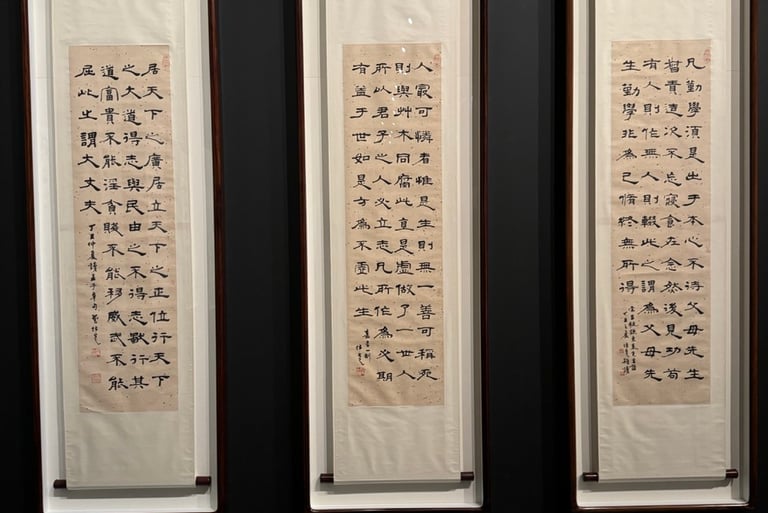 凡勤學須是出于本心不待父母先生
督責造次不忘寢食在念然後見功苟
有人則作無人則輟此之謂為父母先
生勤學非為己脩終無所得
人最可憐者惟是生則無一善可稱死
則與艸木同腐此真是虛做了一世人
所以君子之人必立志凡所作為必期
有益于世如是方為不虛此生
居天下之廣居立天下之正位行天下
之大道得志與民由之不得志獨行其
道富貴不能淫貧賤不能移威武不能
屈此之謂大丈夫
丁丑仲夏讀孟子章句